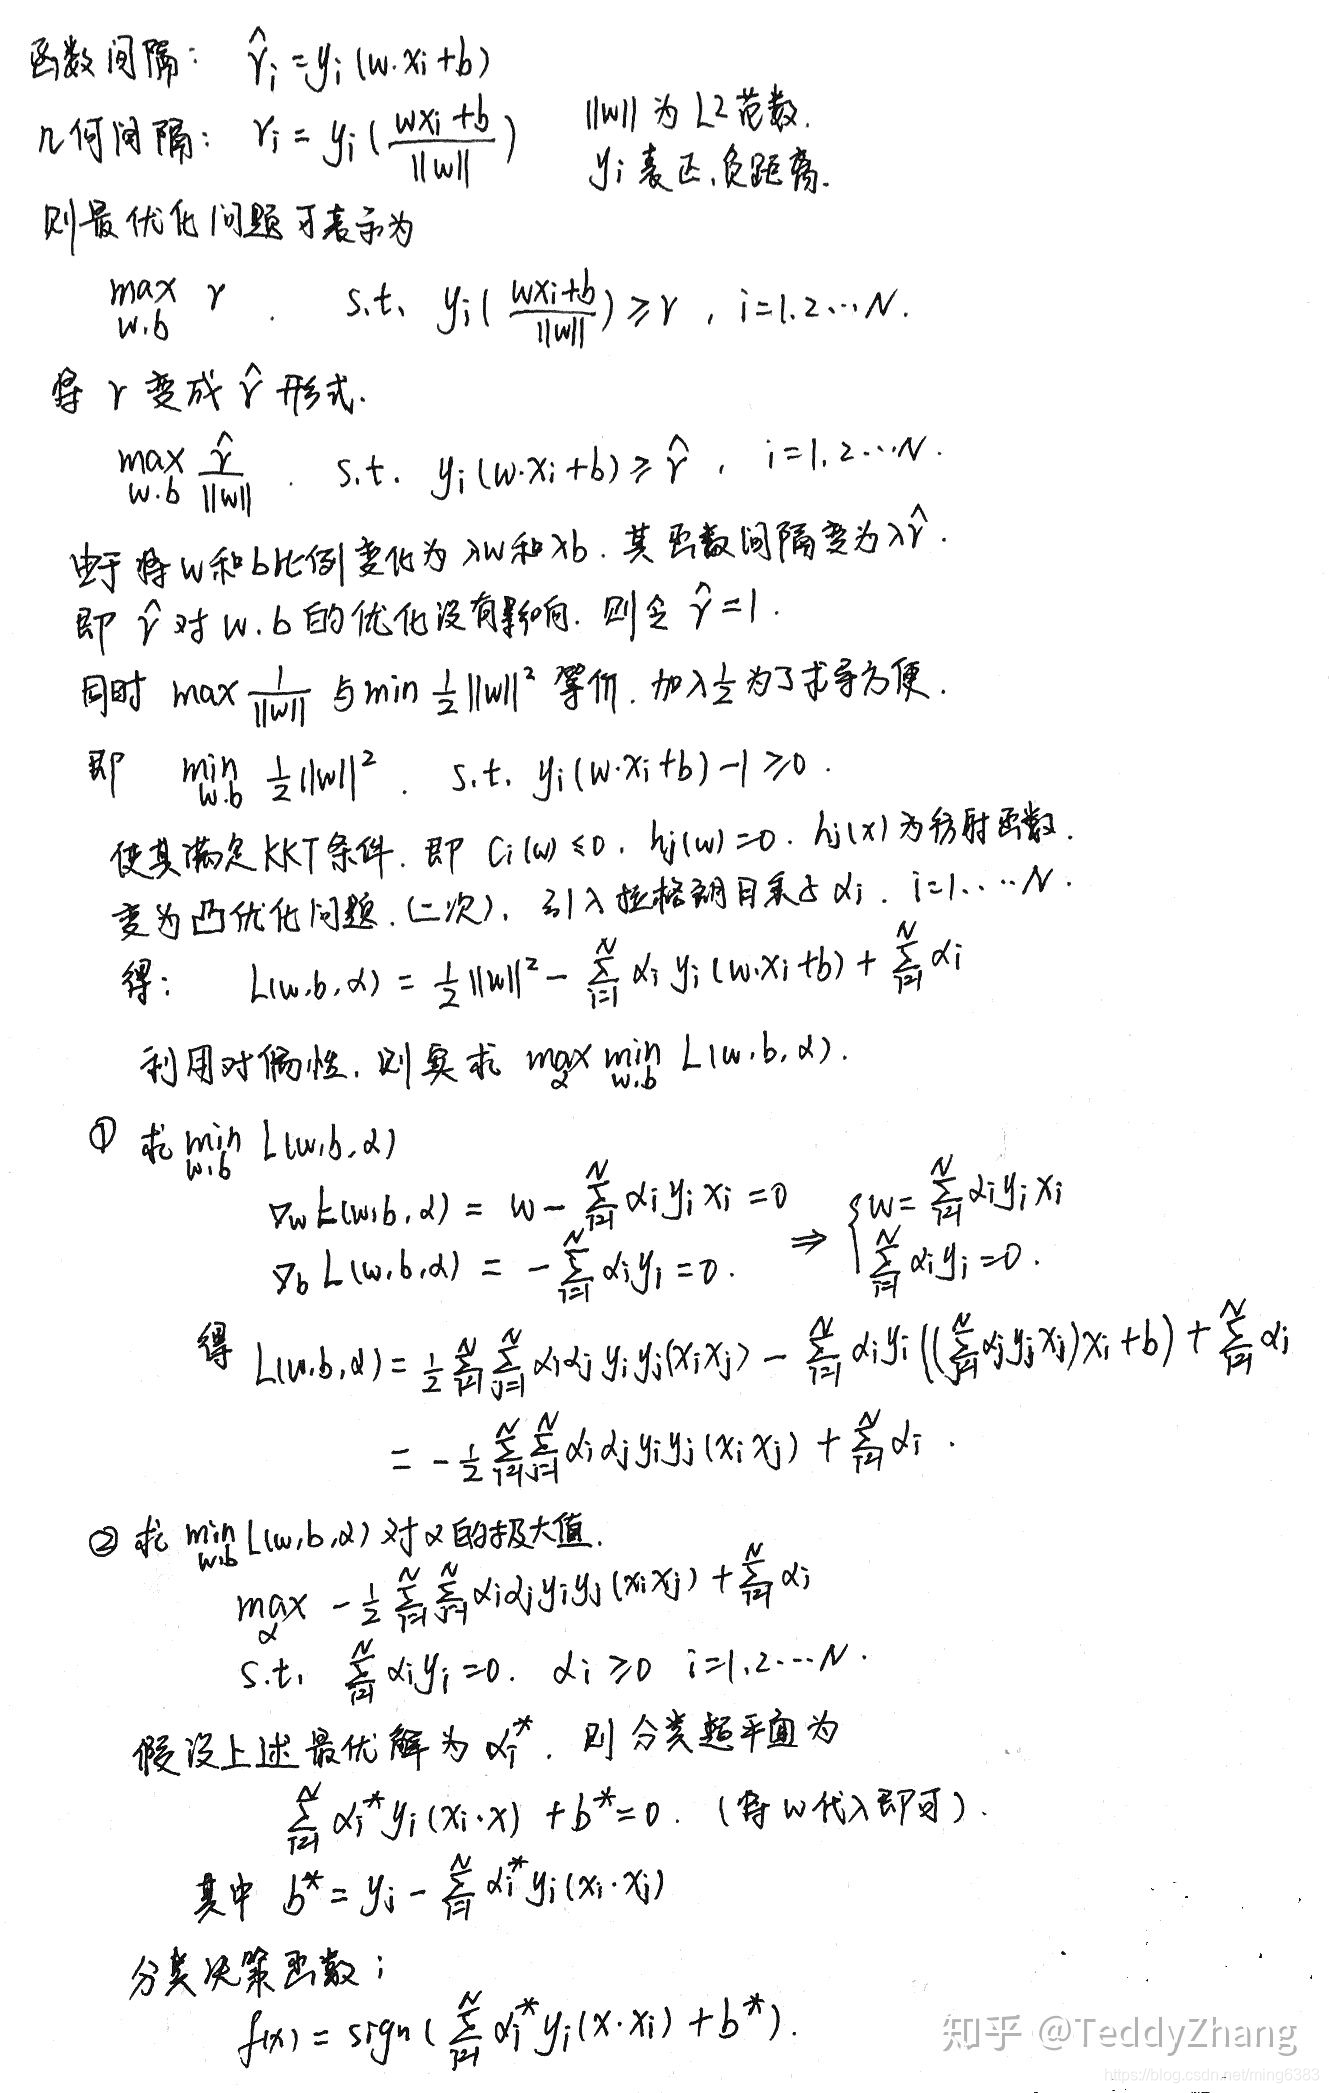 函数间隔: γ̂i = yi(w·xi+b)
几何间隔: γi = yi( (wxi+b)/||w|| )   ||w|| 为 L2 范数.
yi 表正,负距离.
则最优化问题可表示为
max w.b γ . s.t. yi( (wxi+b)/||w|| ) ≥ γ , i=1.2…N.
将 γ 变成 γ̂ 形式.
max w.b γ̂/||w|| . s.t. yi(w·xi+b) ≥ γ̂ , i=1,2…N.
由于将w和b比例变化为λw和λb. 其函数间隔变为λγ̂.
即 γ̂ 对 w.b 的优化没有影响. 则令 γ̂=1.
同时 max 1/||w|| 与 min ½||w||² 等价. 加入½为了求导方便.
即 min w.b ½||w||² . s.t. yi(w·xi+b)-1≥0 .
使其满足KKT条件. 即 Ci(w)≤0. hj(w)=0. hj(x)为仿射函数.
变为凸优化问题.(二次). 引入拉格朗日乘子 αi. i=1.…N.
得: L(w,b,α) = ½||w||² - Σ(i=1→N) αi yi(w·xi+b) + Σ(i=1→N) αi
利用对偶性. 则要求 max α min w.b L(w,b,α).
① 求 min w,b L(w,b,α)
∇w L(w,b,α) = w - Σ(i=1→N) αi yi xi = 0 ⇒ { w = Σ(i=1→N) αi yi xi
∇b L(w,b,α) = - Σ(i=1→N) αi yi = 0. Σ(i=1→N) αi yi = 0.
得 L(w,b,α) = ½ Σ(i=1→N) Σ(j=1→N) αi αj yi yj (xi xj) - Σ(i=1→N) αi yi ((Σ(j=1→N) αj yj xj) xi + b) + Σ(i=1→N) αi
= -½ Σ(i=1→N) Σ(j=1→N) αi αj yi yj (xi xj) + Σ(i=1→N) αi .
② 求 min w,b L(w,b,α) 对α的极大值.
max α -½ Σ(i=1→N) Σ(j=1→N) αi αj yi yj (xi xj) + Σ(i=1→N) αi
s.t. Σ(i=1→N) αi yi = 0. αi ≥ 0 i=1,2…N.
假设上述最优解为 αi*. 则分类超平面为
Σ(i=1→N) αi* yi (xi·x) + b* = 0. (将w代入即可).
其中 b* = yj - Σ(i=1→N) αi* yi (xi·xj)
分类决策函数:
f(x) = sign( Σ(i=1→N) αi* yi (x·xi) + b* ).
知乎 @TeddyZhang
https://blog.csdn.net/ming6383